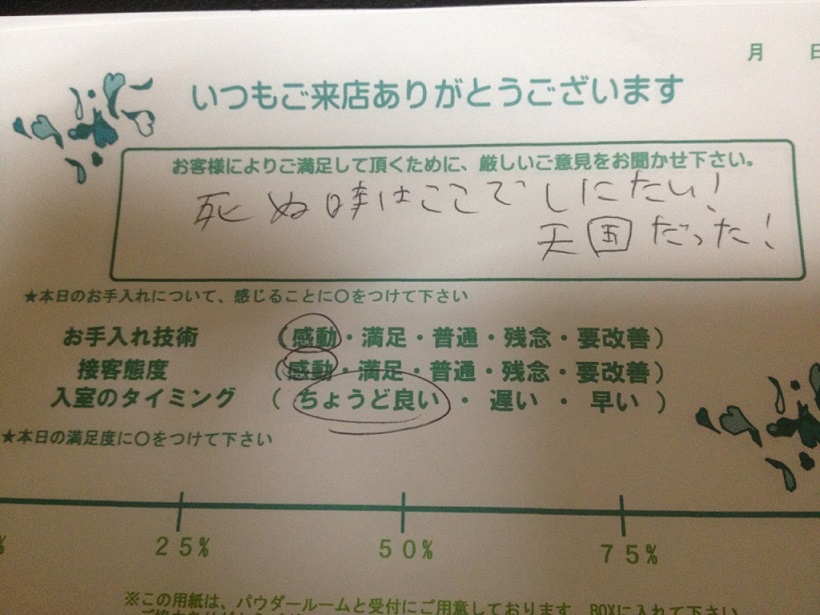 月 日
いつもご来店ありがとうございます
お客様によりご満足して頂くために、厳しいご意見をお聞かせ下さい。
死ぬ時はここでしにたい!
天国だった!
★本日のお手入れについて、感じることに〇をつけて下さい
お手入れ技術 (感動・満足・普通・残念・要改善)
接客態度 (感動・満足・普通・残念・要改善)
入室のタイミング ( ちょうど良い ・ 遅い ・ 早い )
★本日の満足度に〇をつけて下さい
% 25% 50% 75%
※この用紙は、パウダールームと受付にご用意しております。BOXに入れて下さい